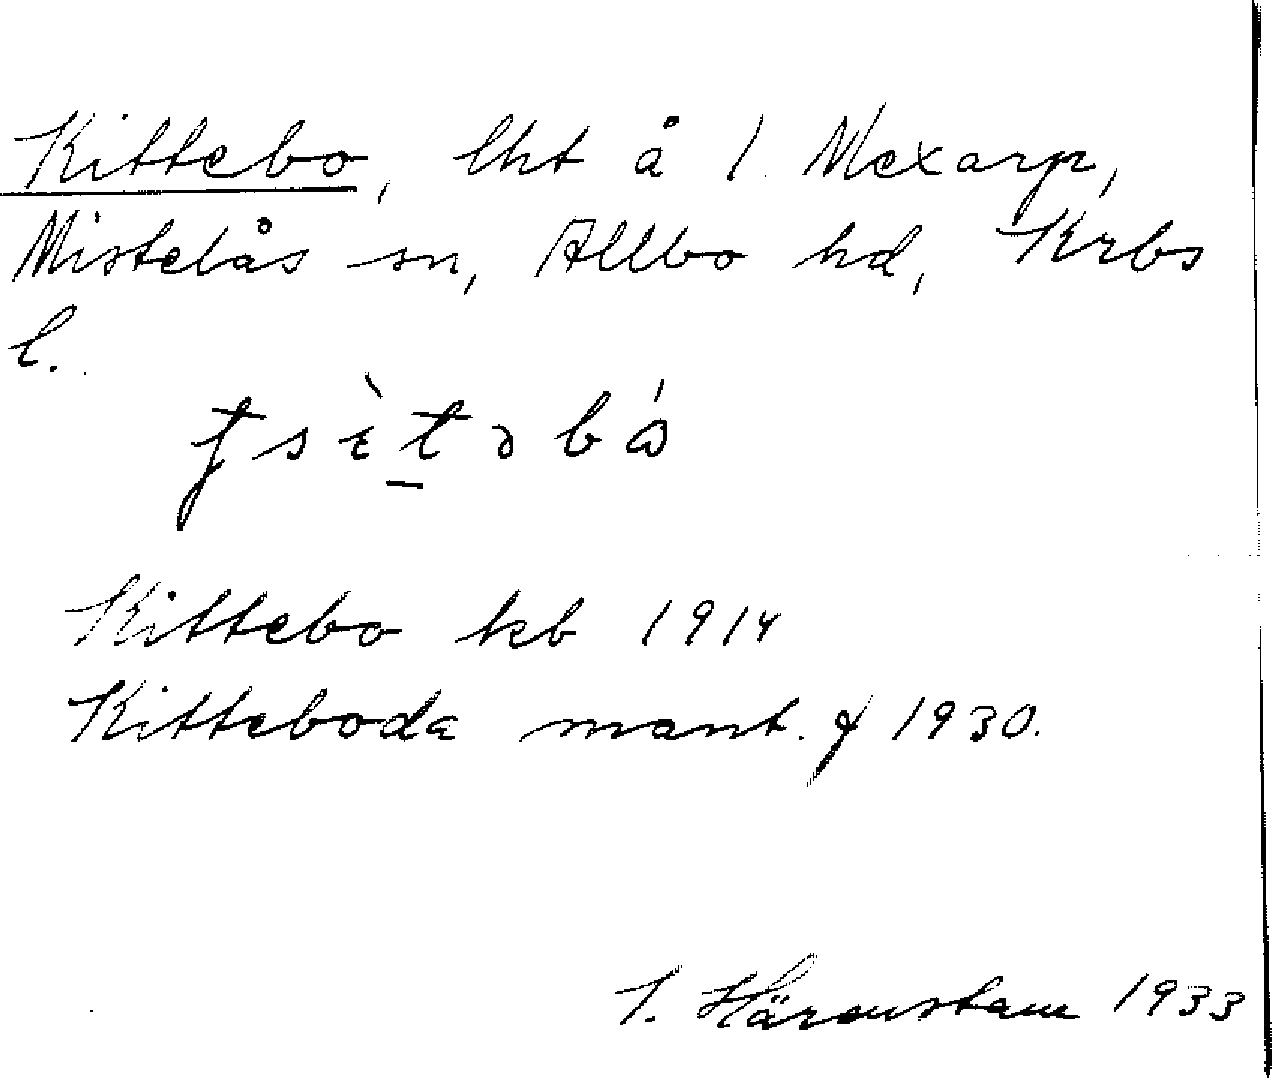 Kittebo, lht å 1 Mexarp,
Mistelås sn, Allbo hd, Krbs
l.
Kittebo kb 1914
Kitteboda mant. 1930.
Härenstam 1933